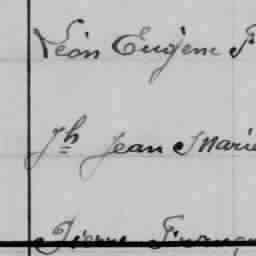 Léon Eugène F
Jh Jean Marie
Pierre Franço